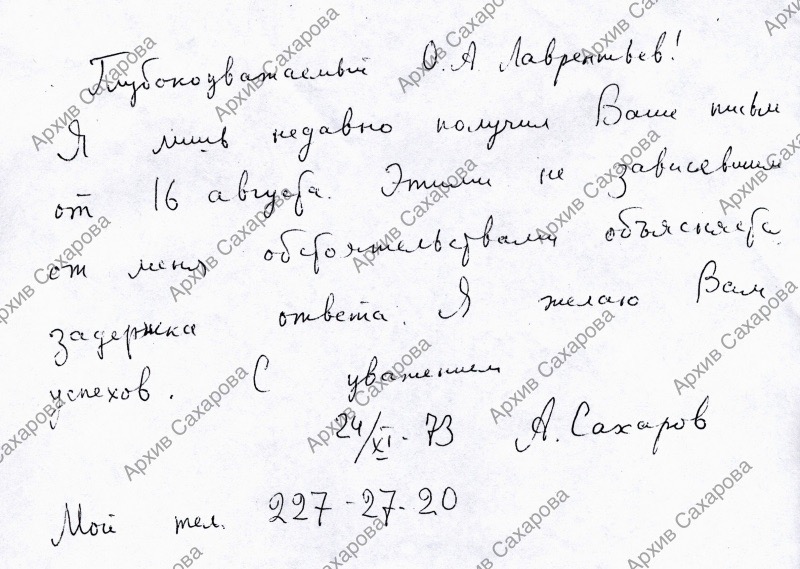 Глубокоуважаемый О.А. Лаврентьев!
Я лишь недавно получил Ваше письм
от 16 августа. Этими не зависевшим
от меня обстоятельствами объясняется
задержка ответа. Я желаю Вам
успехов. С уважением
24/XI-73 А. Сахаров
Мой тел. 227-27-20
Архив Сахарова